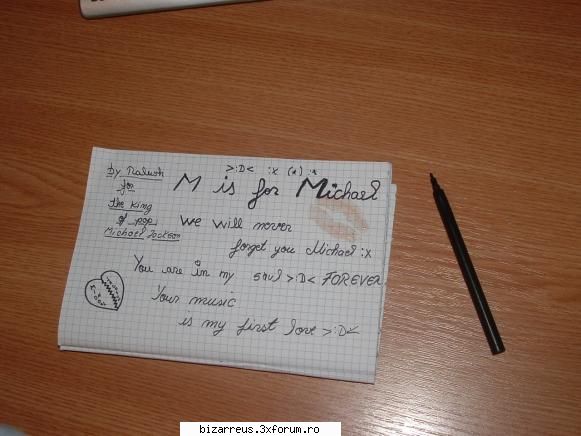 >:D< :x (*) :*
By Raluk
for
the King
of pop
Michael Jackson
M is for Michael
We will never
forget you Michael :x
You are in my soul >:D< FOREVER
Your music
is my first love >:D<
bizarreus.3xforum.ro